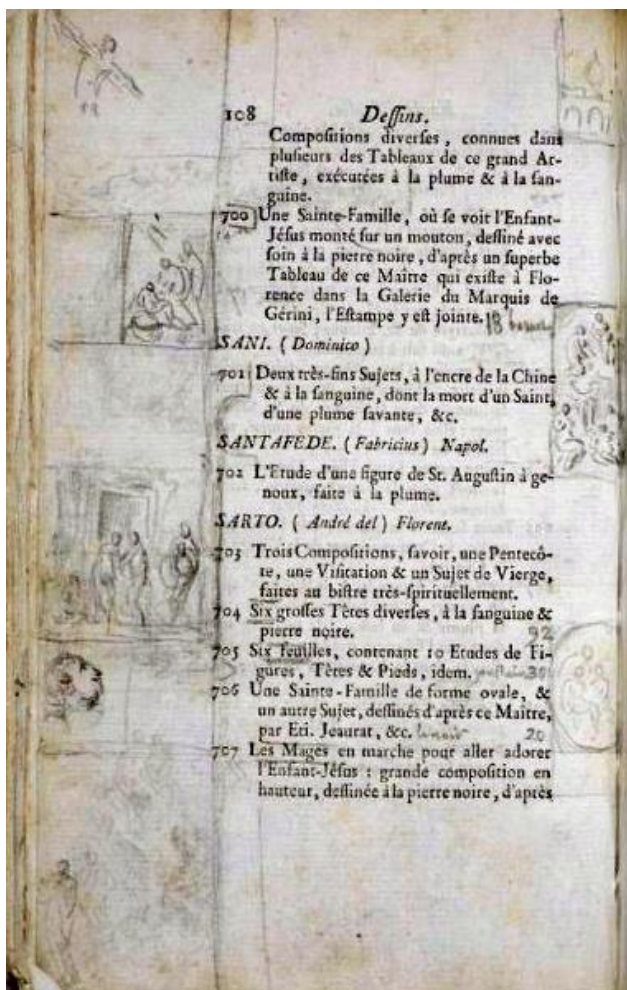 108 Deſſins.
Compoſitions diverſes, connues dans
pluſieurs des Tableaux de ce grand Ar-
tiſte, exécutées à la plume & à la ſan-
guine.
700 Une Sainte-Famille, où ſe voit l'Enfant-
Jéſus monté ſur un mouton, deſſiné avec
ſoin à la pierre noire, d'après un ſuperbe
Tableau de ce Maître qui exiſte à Flo-
rence dans la Galerie du Marquis de
Gérini, l'Eſtampe y eſt jointe. 18
SANI. (Dominico)
701 Deux très-fins Sujets, à l'encre de la Chine
& à la ſanguine, dont la mort d'un Saint,
d'une plume ſavante, &c.
SANTAFEDE. (Fabricius) Napol.
702 L'Etude d'une figure de St. Auguſtin à ge-
noux, faite à la plume.
SARTO. (André del) Florent.
703 Trois Compoſitions, ſavoir, une Pentecô-
te, une Viſitation & un Sujet de Vierge,
faites au biſtre très-ſpirituellement.
704 Six groſſes Têtes diverſes, à la ſanguine &
pierre noire. 92
705 Six feuilles, contenant 10 Etudes de Fi-
gures, Têtes & Pieds, idem.
706 Une Sainte-Famille de forme ovale, &
un autre Sujet, deſſinés d'après ce Maître,
par Eti. Jeaurat, &c. 20
707 Les Mages en marche pour aller adorer
l'Enfant-Jéſus : grande compoſition en
hauteur, deſſinée à la pierre noire, d'après